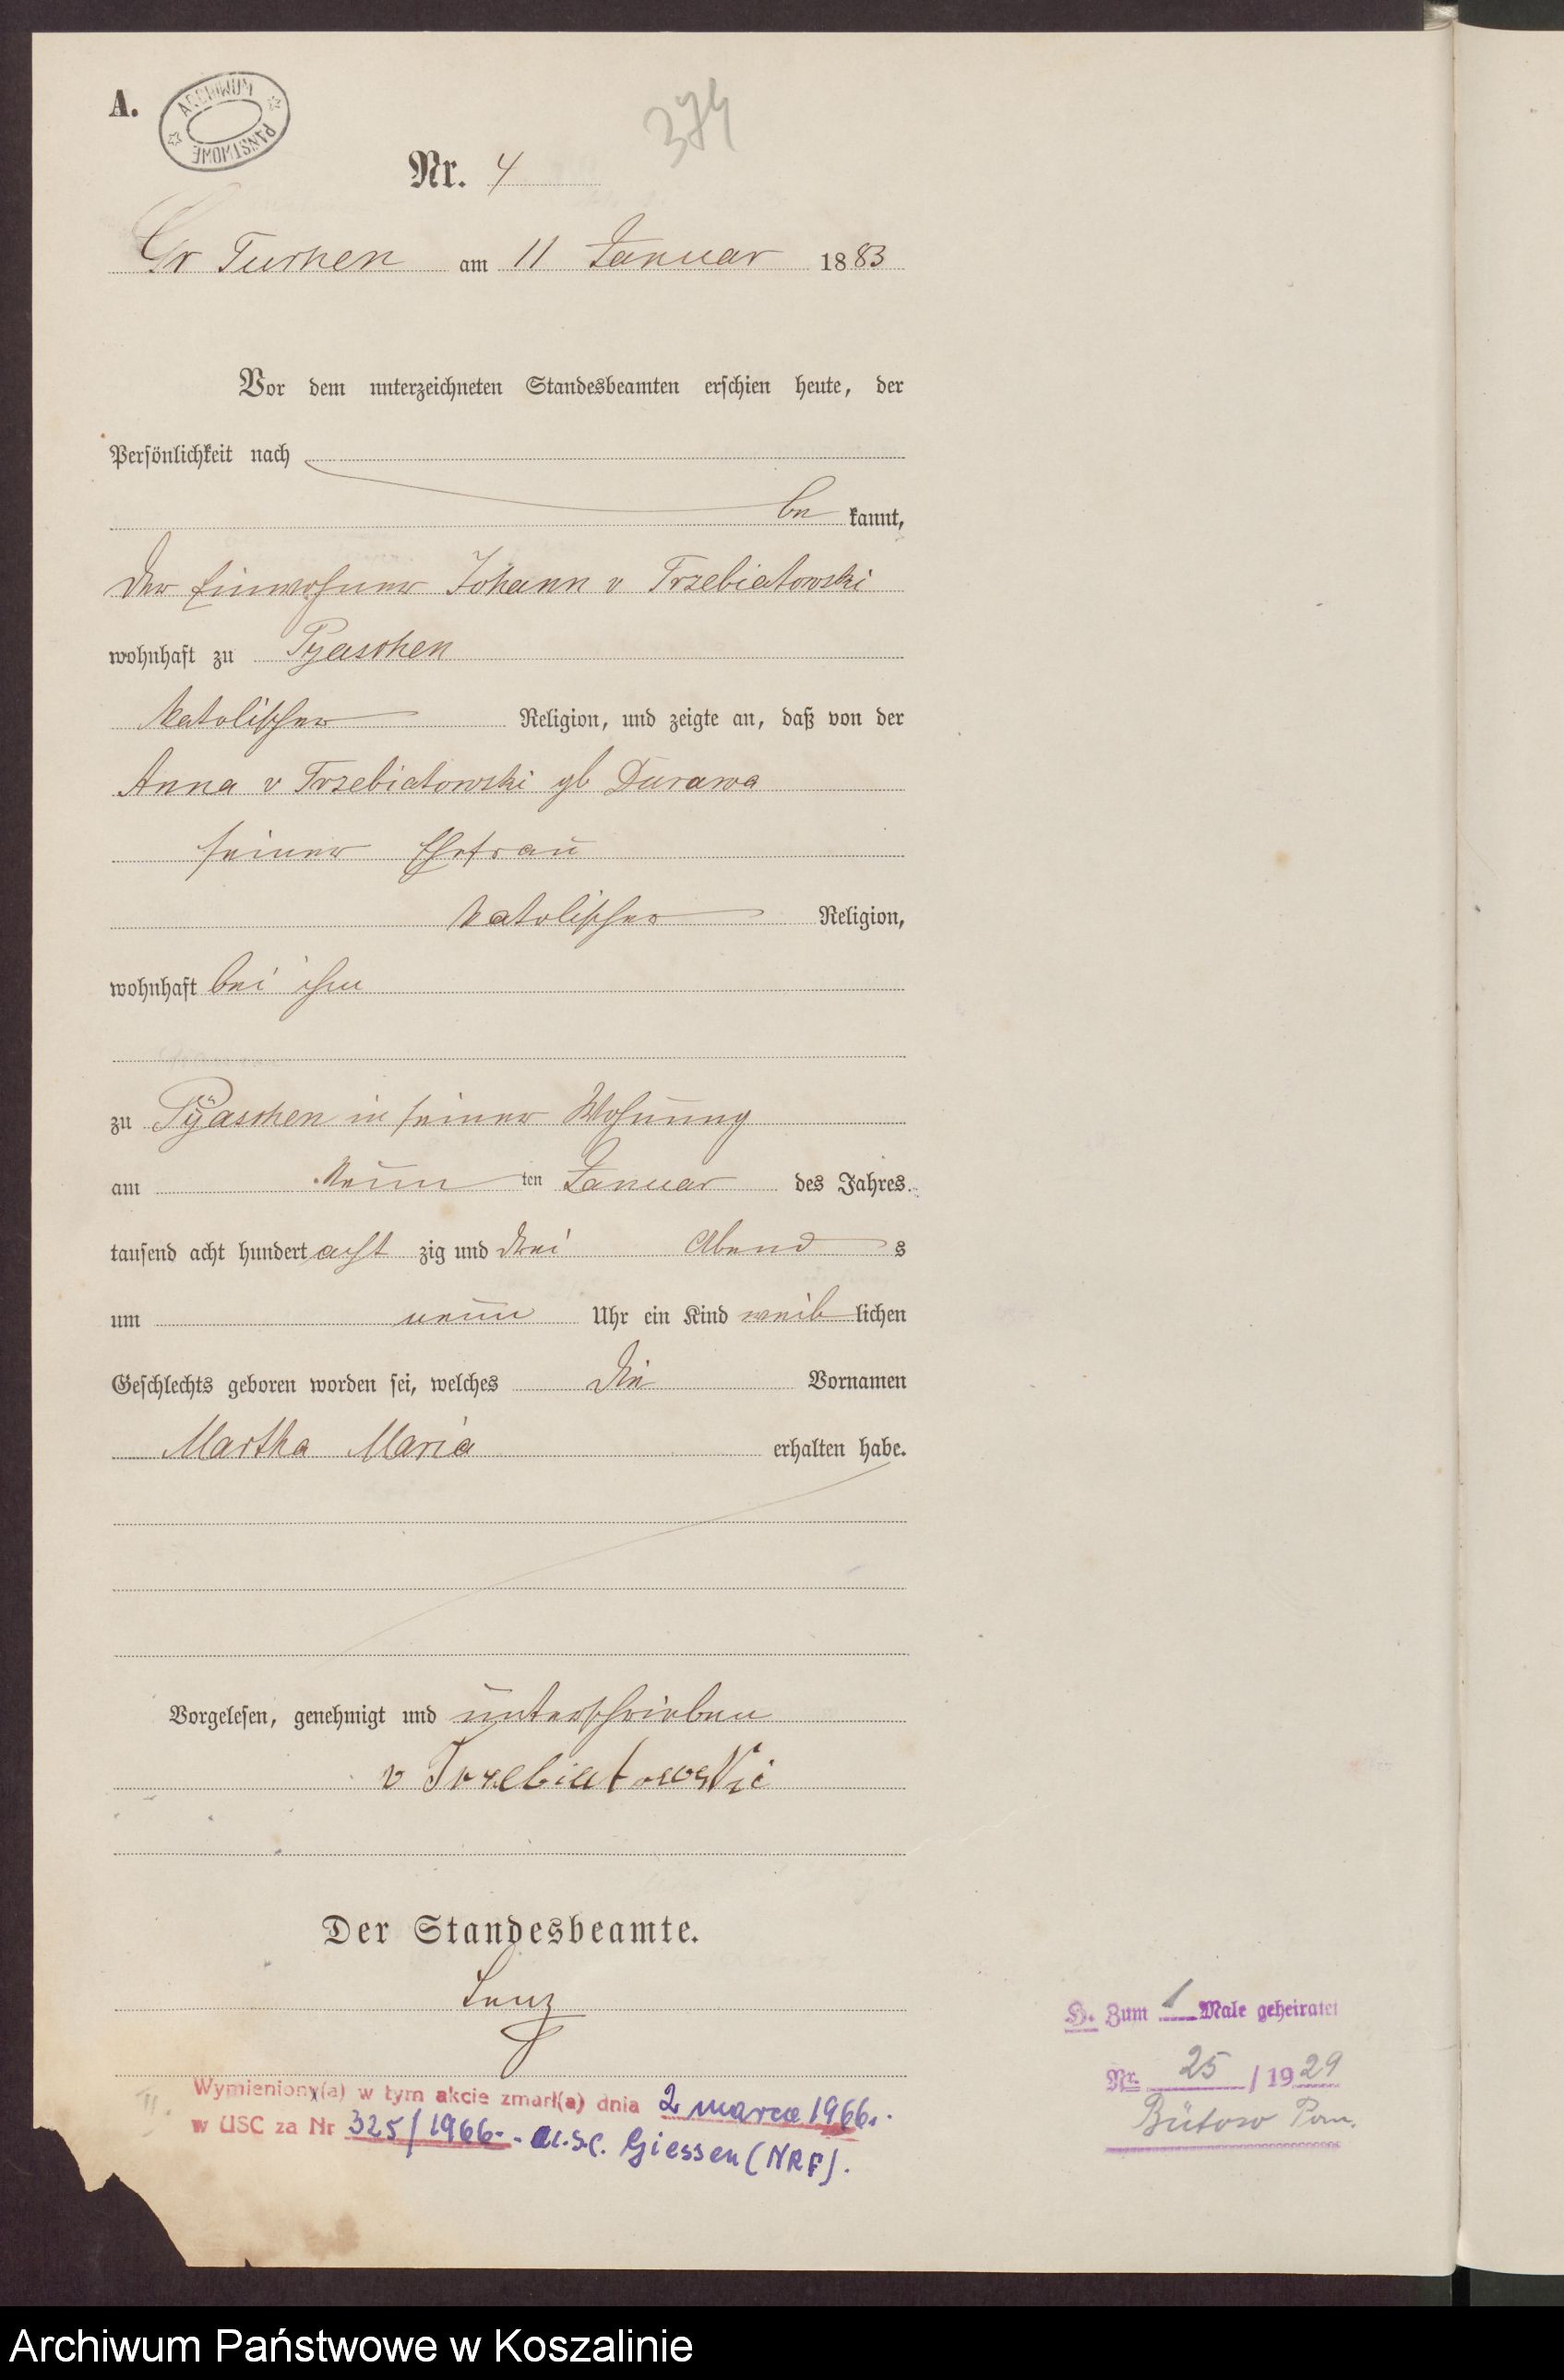 A.
ARCHIWUM PAŃSTWOWE
374
Nr. 4
Gr Tuchen am 11 Januar 1883
Vor dem unterzeichneten Standesbeamten erschien heute, der
Persönlichkeit nach
be kannt,
der Einwohner Johann v Trzebiatowski
wohnhaft zu Pyaschen
katolischer Religion, und zeigte an, daß von der
Anna v Trzebiatowski gb Durawa
seiner Ehefrau
katolischer Religion,
wohnhaft bei ihm
zu Pÿaschen in seiner Wohnung
am neun ten Januar des Jahres
tausend acht hundert acht zig und drei Abend s
um neun Uhr ein Kind weib lichen
Geschlechts geboren worden sei, welches die Vornamen
Martha Maria erhalten habe.
Vorgelesen, genehmigt und unterschrieben
v Trzebiatowski
Der Standesbeamte.
Lenz
H. Zum 1 Male geheiratet
Nr. 25 / 1929
Bütow Pom.
II.
Wymieniony(a) w tym akcie zmarł(a) dnia 2 marca 1966r.
w USC za Nr 325/1966 - u.s.c. Giessen (NRF).
Archiwum Państwowe w Koszalinie